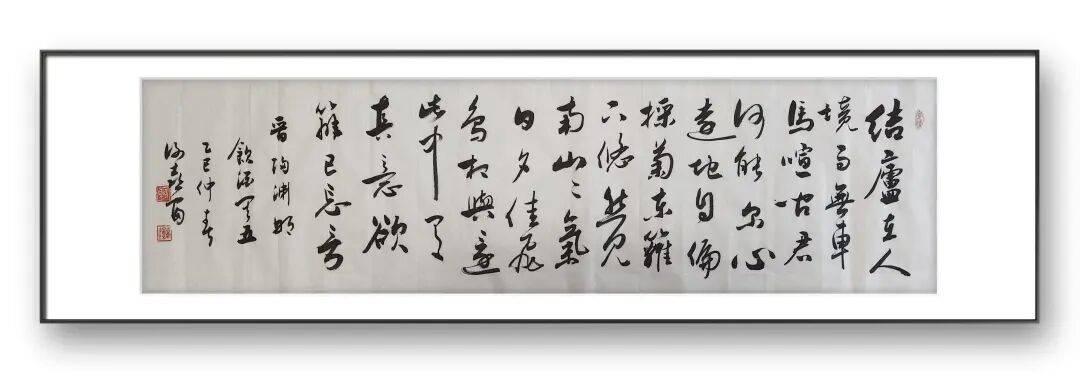 結廬在人
境而無車
馬喧问君
何能尔心
遠地自偏
採菊东籬
下悠然见
南山〻氣
日夕佳飛
鸟相與還
此中有
真意欲
辨已忘言
晋陶渊明
飲酒其五
乙巳仲春